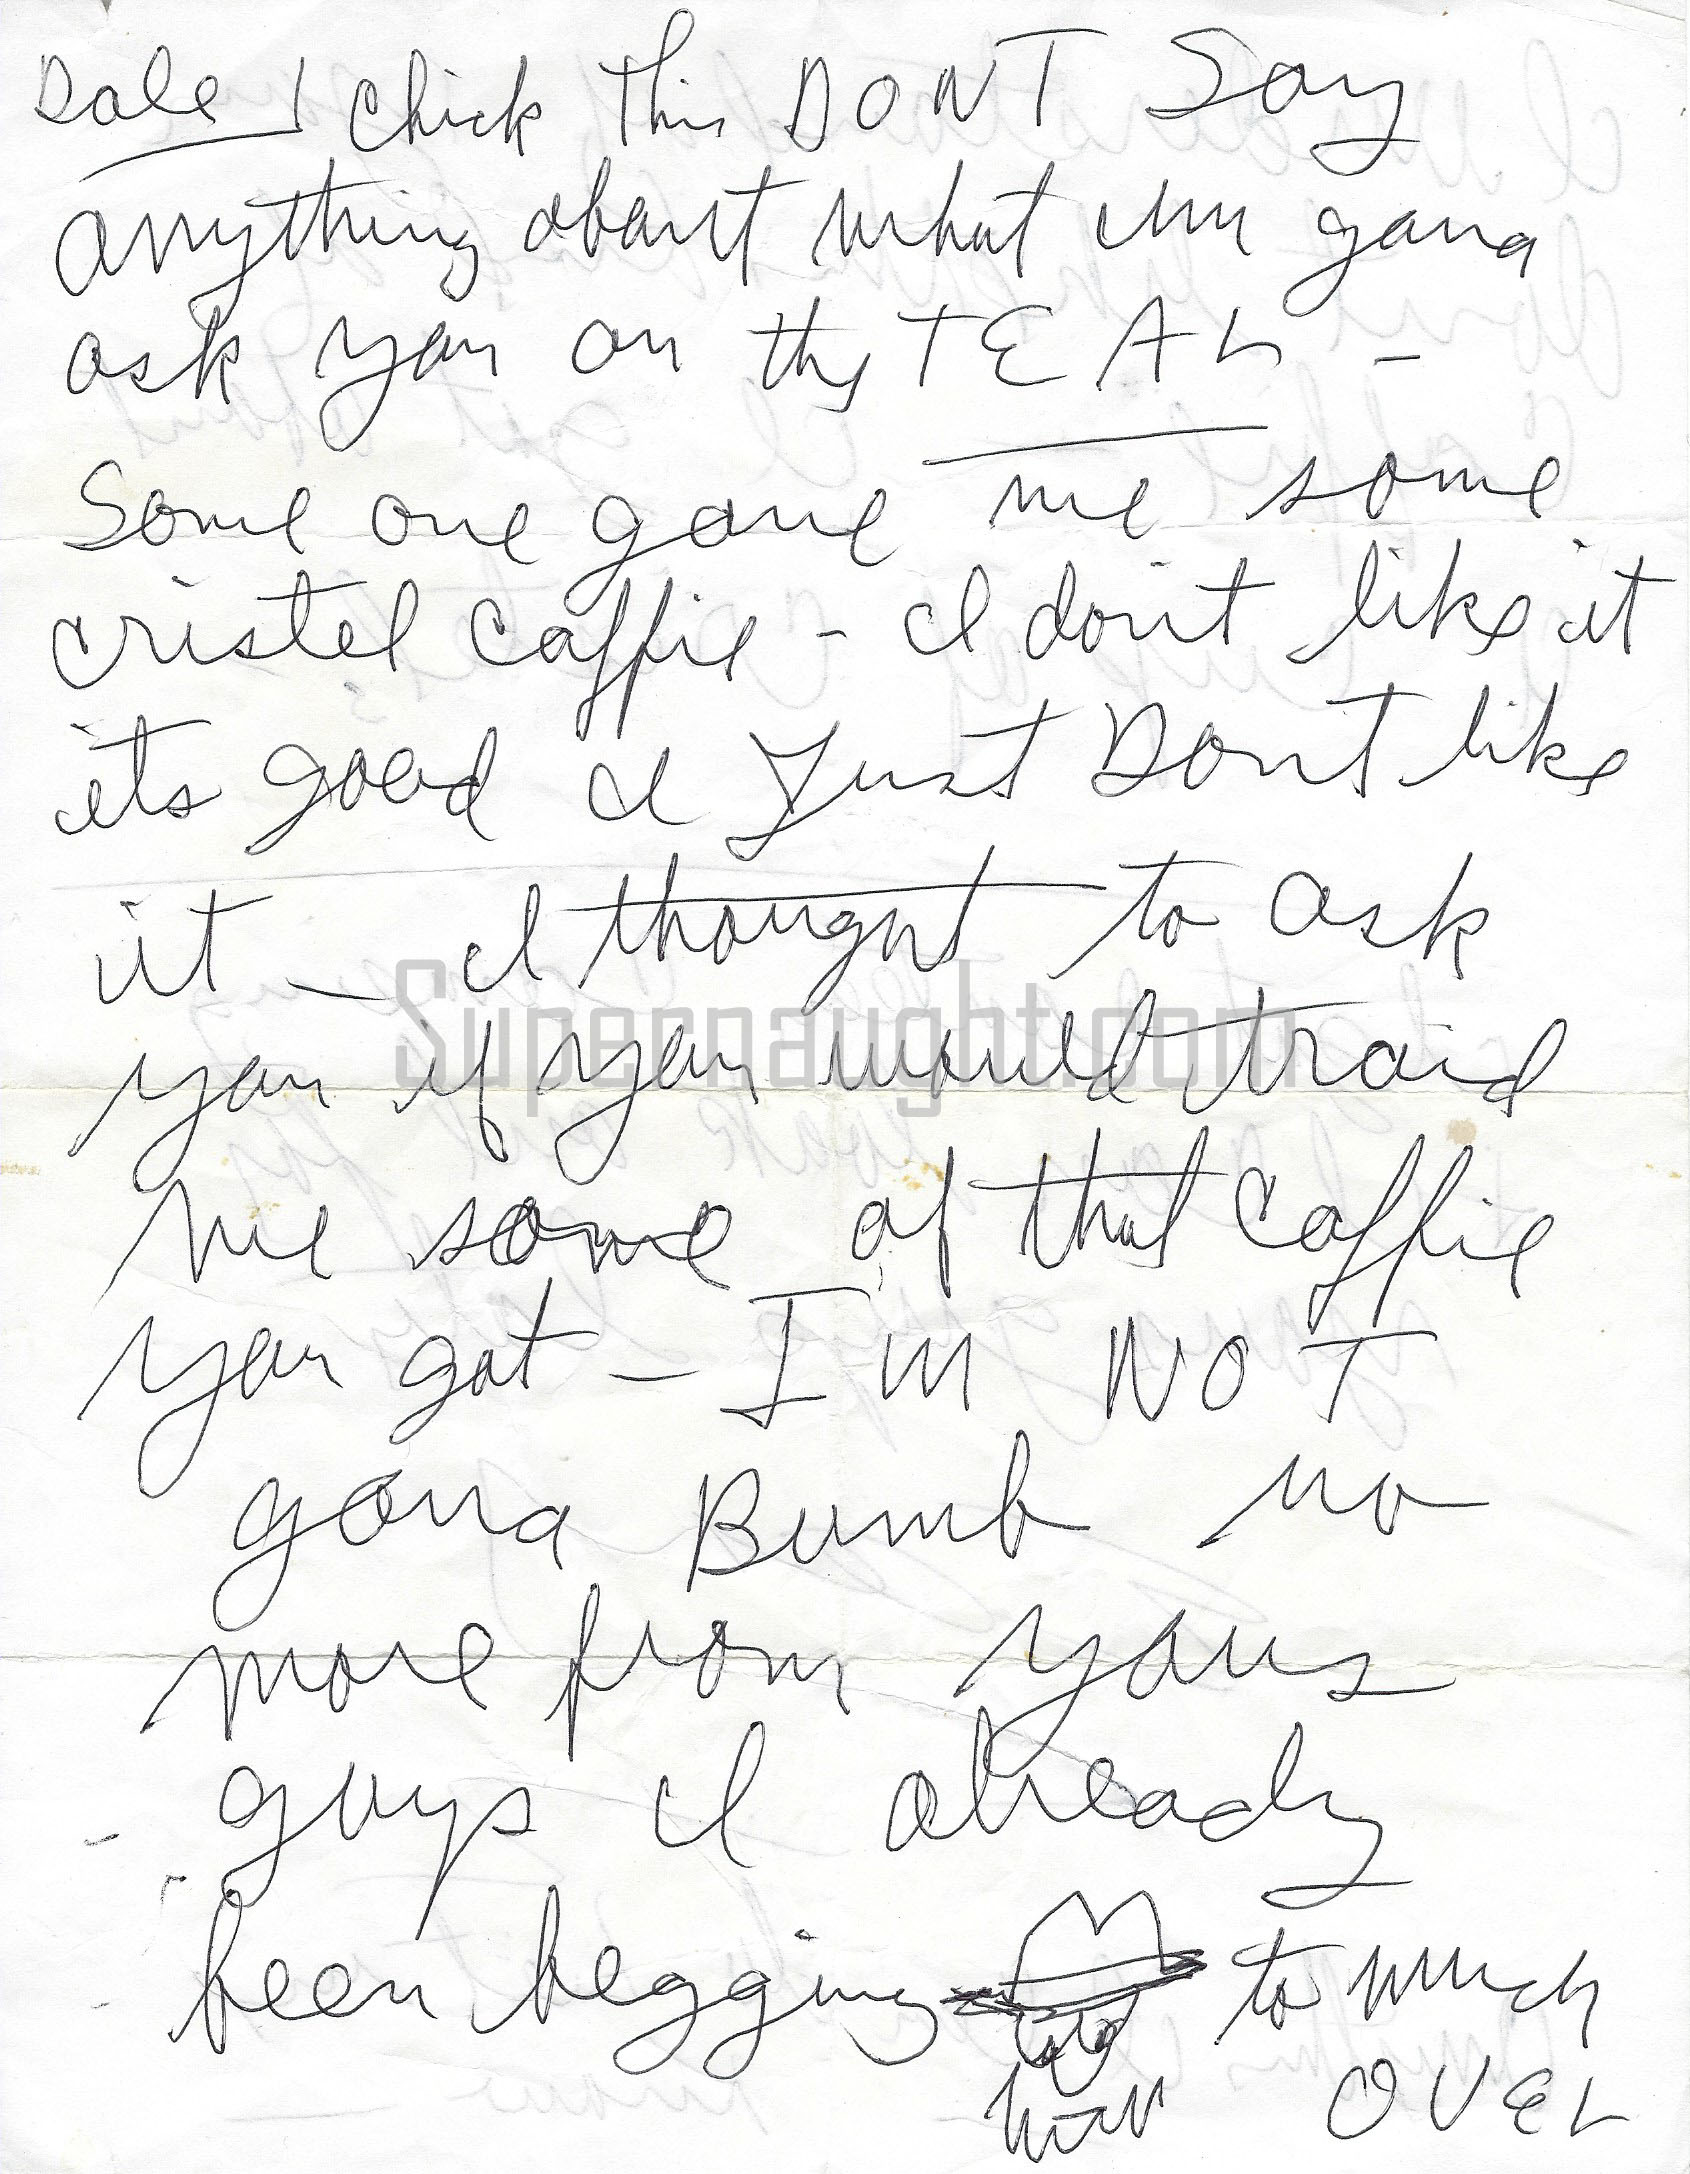 Dale / Chick this DONT Say
anything about what im gona
ask you on the TEAR -
Some one gave me some
cristel caffie - I don't like it
its good I Just Dont like
it - I thought to ask
Supernaught.com
you if you would traid
me some of that caffie
you got - I'm NOT
gona Bumb no
more from yous
guys I already
been begging to much
OVER